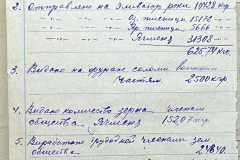 2. Отправлено на элеватор ржи 10428 кгр.
" — " — " Оз. пшеницы 15172 — "
" — " — " Яр. пшеницы 5666 "
" — " — " Ячменя 31308 — "
62574 кгр.
3. Выдано на фураж соломы воинским
частям. 2500 кгр.
4. Выдано количество зерна членам
общества Ячменя 15207 кгр.
5. Выработано трудодней членами зем
общества 21840.